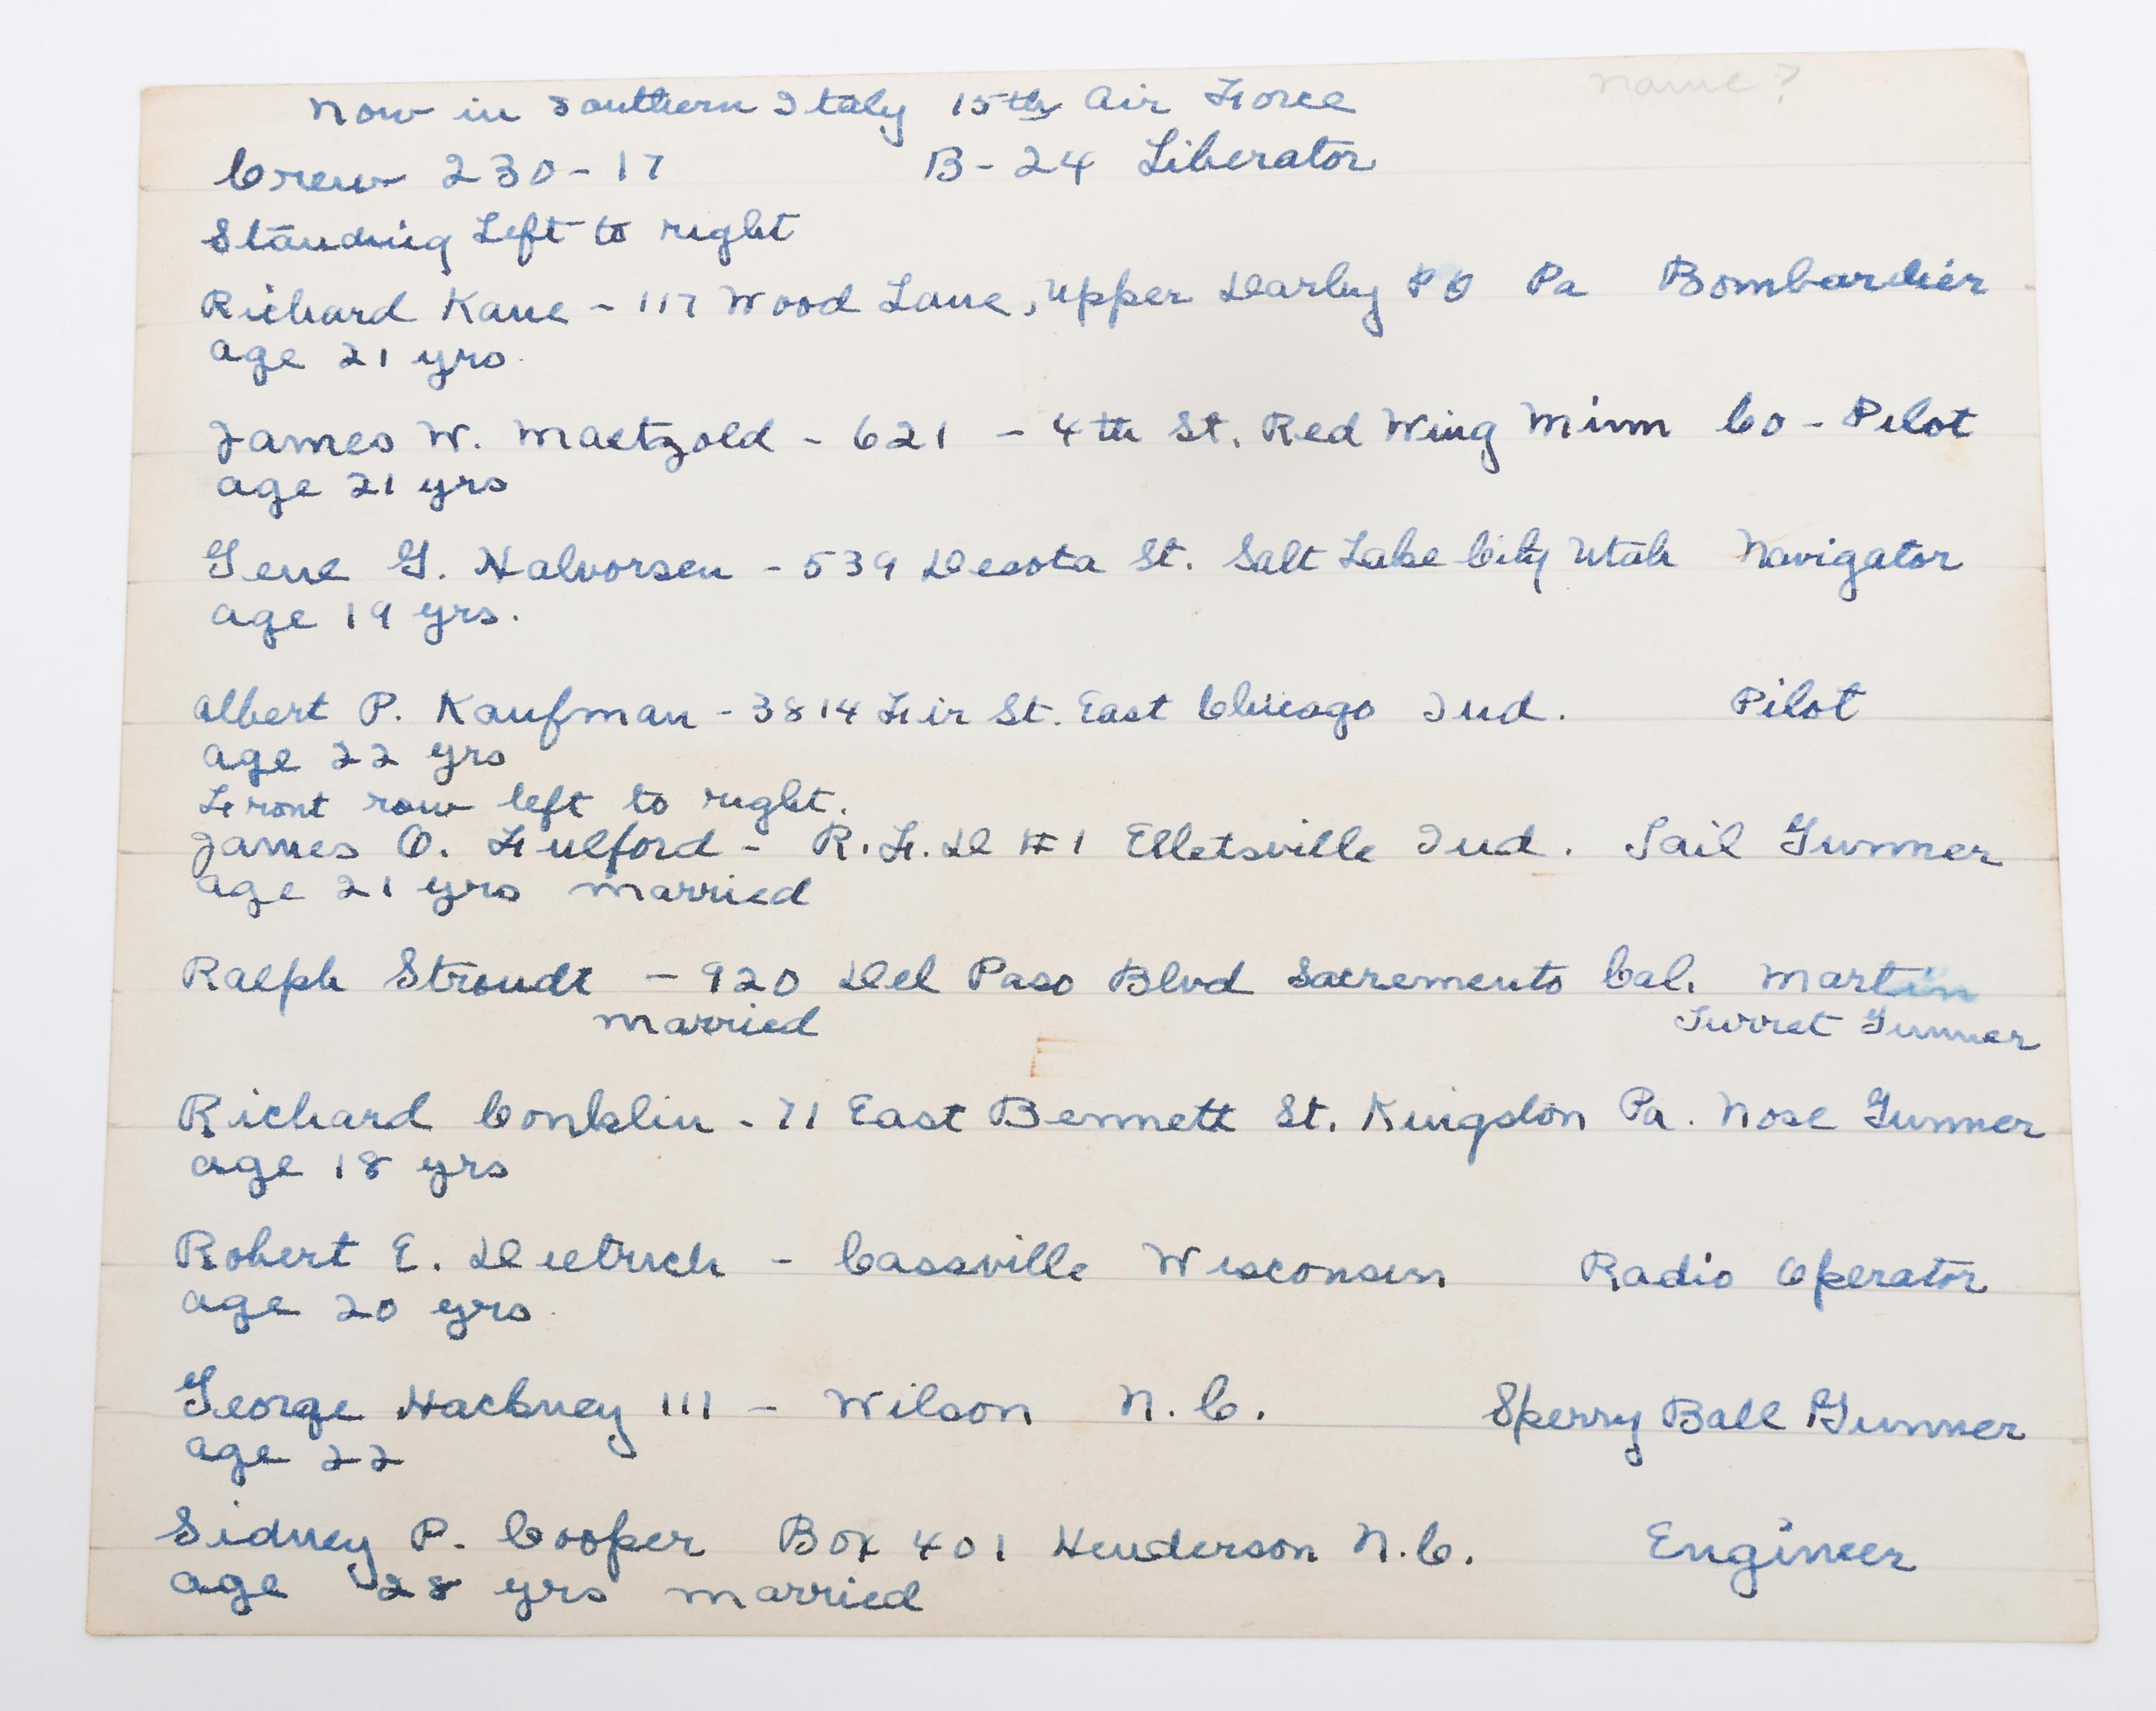 name?
Now in Southern Italy 15th Air Force
Crew 230-17 B-24 Liberator
Standing Left to right
Richard Kane - 117 Wood Lane, Upper Darby P O Pa Bombardier
age 21 yrs.
James W. Maetzold - 621 - 4th St. Red Wing Minn Co-Pilot
age 21 yrs
Gene G. Halvorsen - 539 Desota St. Salt Lake City Utah Navigator
age 19 yrs.
Albert P. Kaufman - 3814 Fir St. East Chicago Ind. Pilot
age 22 yrs
Front row left to right.
James O. Fulford - R.F.D #1 Elletsville Ind. Tail Gunner
age 21 yrs married
Ralph Stroudt - 920 Del Paso Blvd Sacremento Cal. Martin
married Turret Gunner
Richard Conklin - 71 East Bennett St. Kingston Pa. Nose Gunner
age 18 yrs
Robert E. Dietrich - Cassville Wisconsin Radio Operator
age 20 yrs.
George Hackney III - Wilson N.C. Sperry Ball Gunner
age 22
Sidney P. Cooper Box 401 Henderson N.C. Engineer
age 28 yrs married